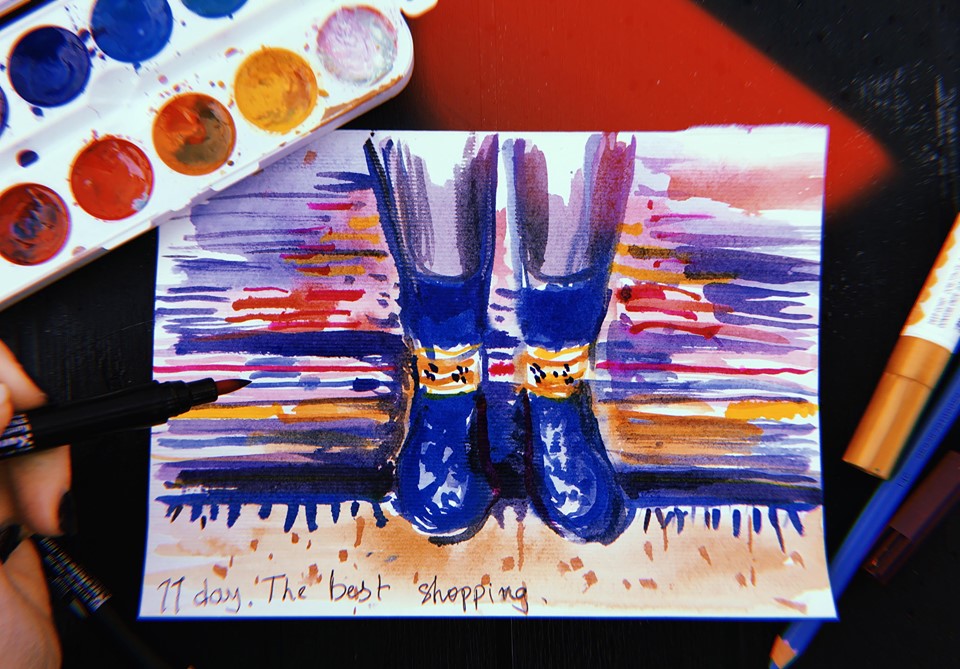 11 day. The best shopping.